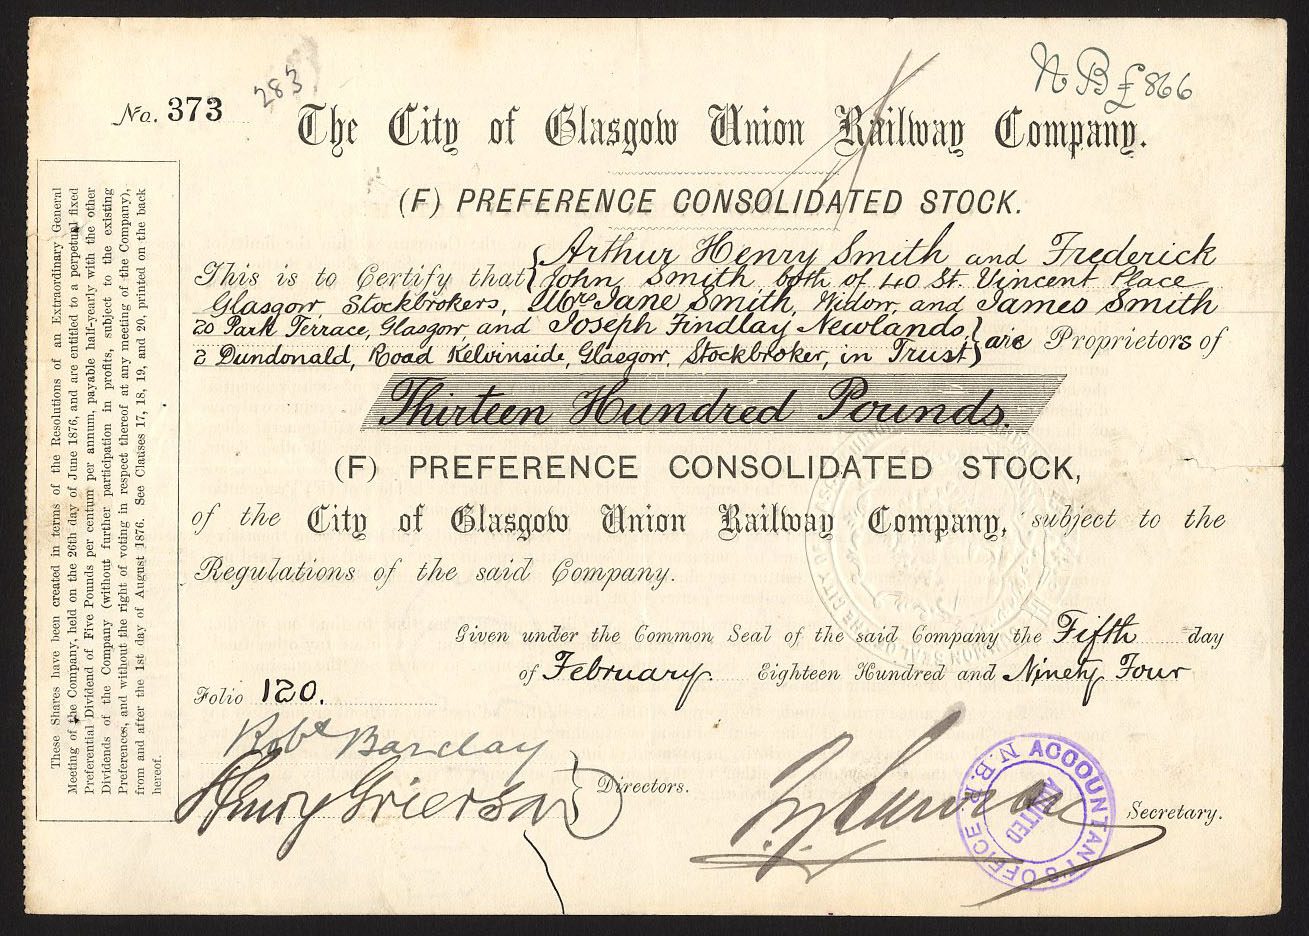 No. 373
283
N B £866
The City of Glasgow Union Railway Company.
(F) PREFERENCE CONSOLIDATED STOCK.
This is to Certify that { Arthur Henry Smith and Frederick
John Smith both of 40 St. Vincent Place
Glasgow, Stockbrokers, Mrs Jane Smith, Widow, and James Smith
20 Park Terrace, Glasgow, and Joseph Findlay Newlands,
2 Dundonald, Road Kelvinside, Glasgow, Stockbroker, in Trust } are Proprietors of
Thirteen Hundred Pounds.
(F) PREFERENCE CONSOLIDATED STOCK,
of the City of Glasgow Union Railway Company, subject to the
Regulations of the said Company.
Given under the Common Seal of the said Company the Fifth day
of February Eighteen Hundred and Ninety Four
Folio 120.
Robt Barclay
Henry Grierson
} Directors.
Secretary.
ACCOUNTANT'S OFFICE N.B.R.
These Shares have been created in terms of the Resolutions of an Extraordinary General
Meeting of the Company, held on the 26th day of June 1876, and are entitled to a perpetual fixed
Preferential Dividend of Five Pounds per centum per annum, payable half-yearly with the other
Dividends of the Company (without further participation in profits, subject to the existing
Preferences, and without the right of voting in respect thereof at any meeting of the Company),
from and after the 1st day of August 1876. See Clauses 17, 18, 19, and 20, printed on the back
hereof.